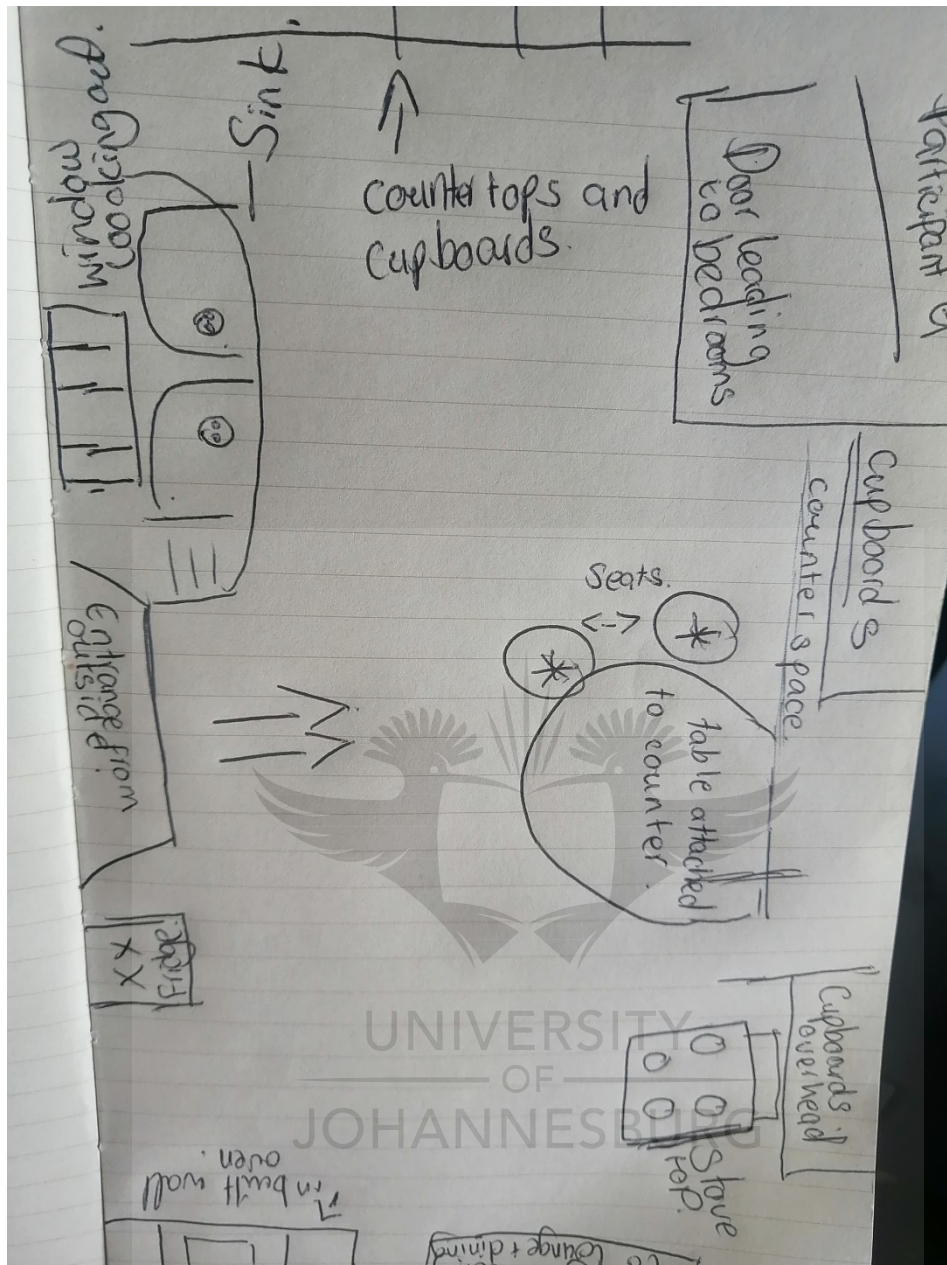 Participant
Door leading
to bedrooms
Cupboards
counter space.
Sink.
window
looking out.
counter tops and
cupboards.
Seats.
table attached
to counter.
Entrance from
outside.
Fridge.
XX
Cupboards
overhead
Stove
top.
in built wall
oven.
lounge + dining
UNIVERSITY
OF
JOHANNESBURG